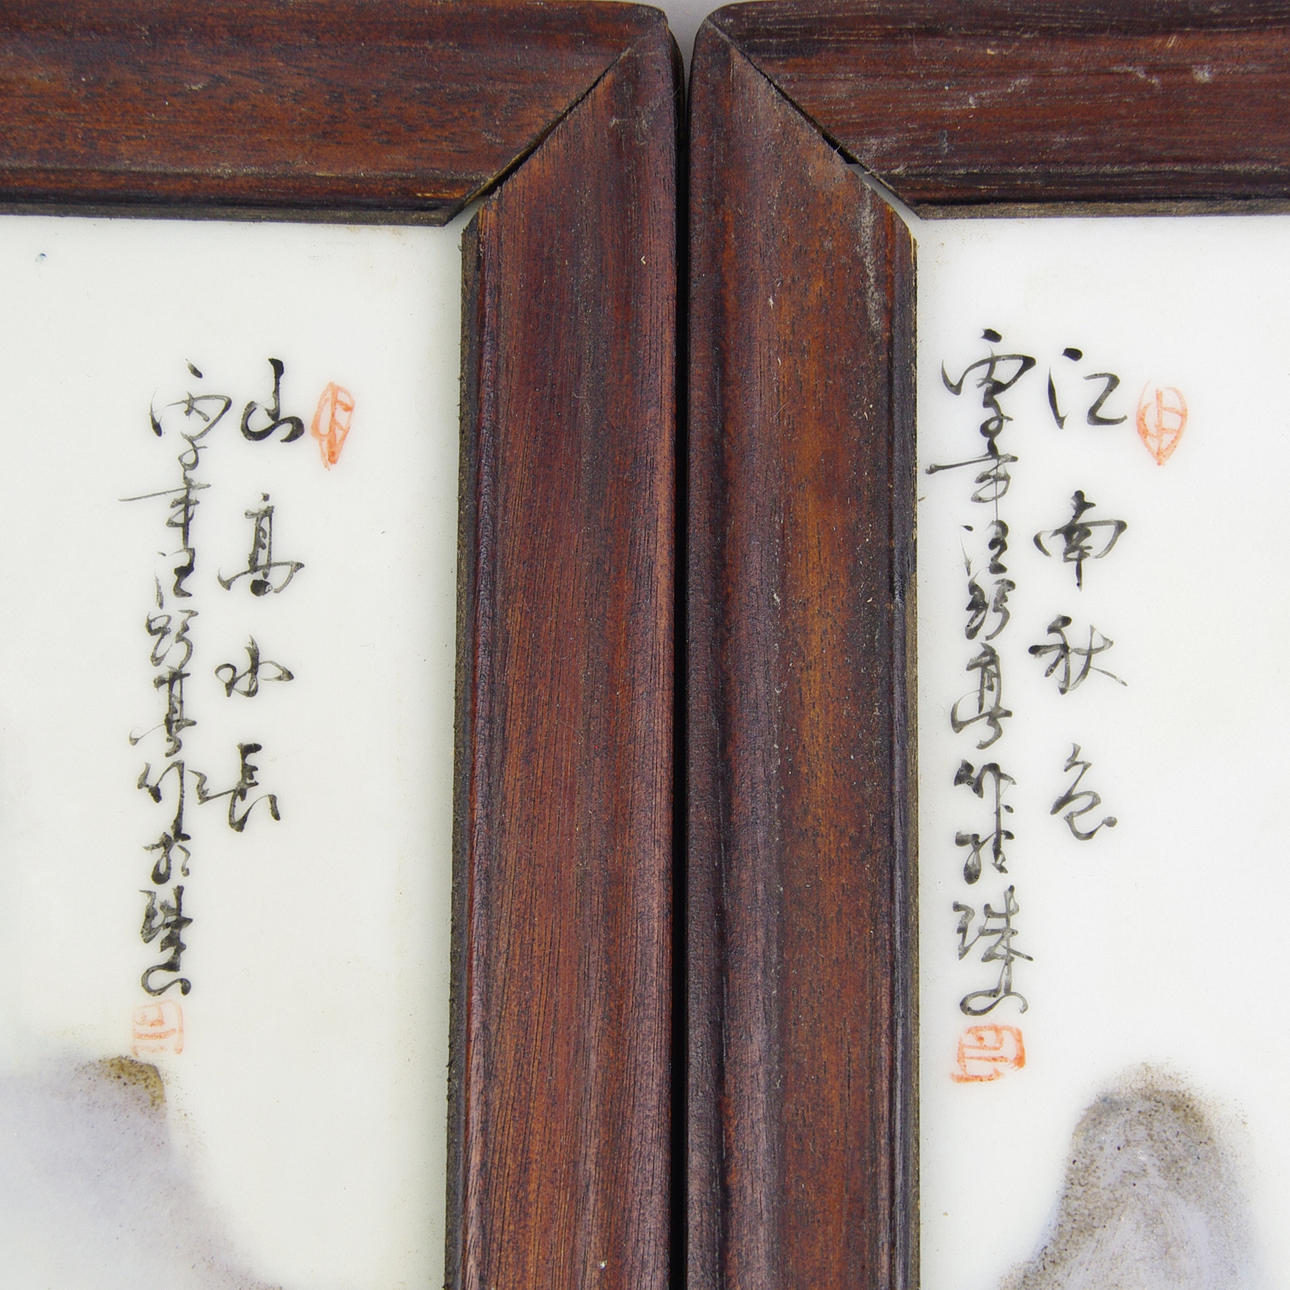 江南秋色
汪野亭作於珠山
山高水長
年汪野亭作於珠山